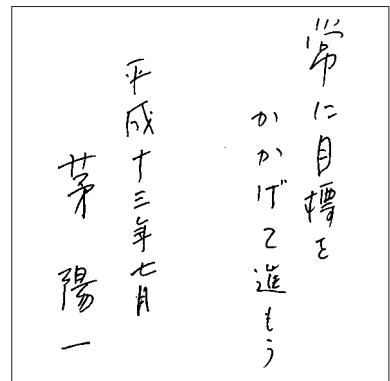 常に目標を
かかげて進もう
平成十三年七月
茅陽一